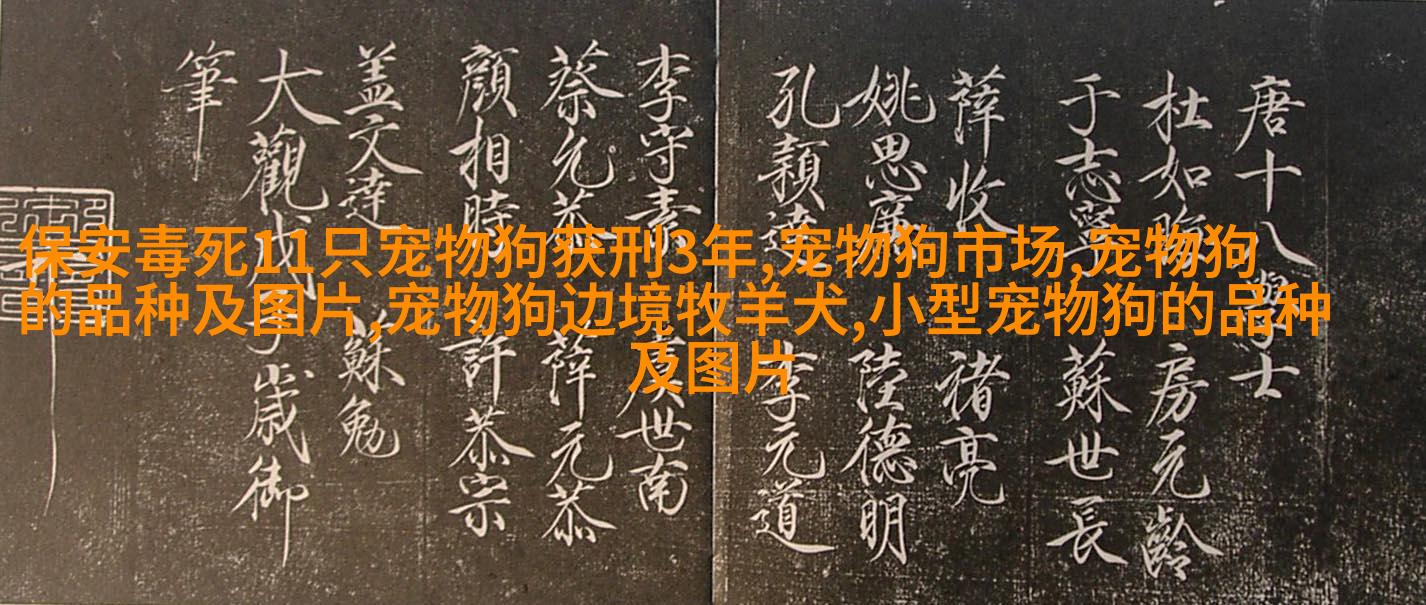 保安毒死11只宠物狗获刑3年,宠物狗市场,宠物狗
的品种及图片,宠物狗边境牧羊犬,小型宠物狗的品种
及图片
唐十八學士
杜如晦 房元齡
于志寧 蘇世長
薛收 褚亮
姚思廉 陸德明
孔穎達 李元道
李守素 虞世南
蔡允恭 薛元恭
顏相時 許恭宗
盖文達 蘇勉
大觀戊子歲御
筆